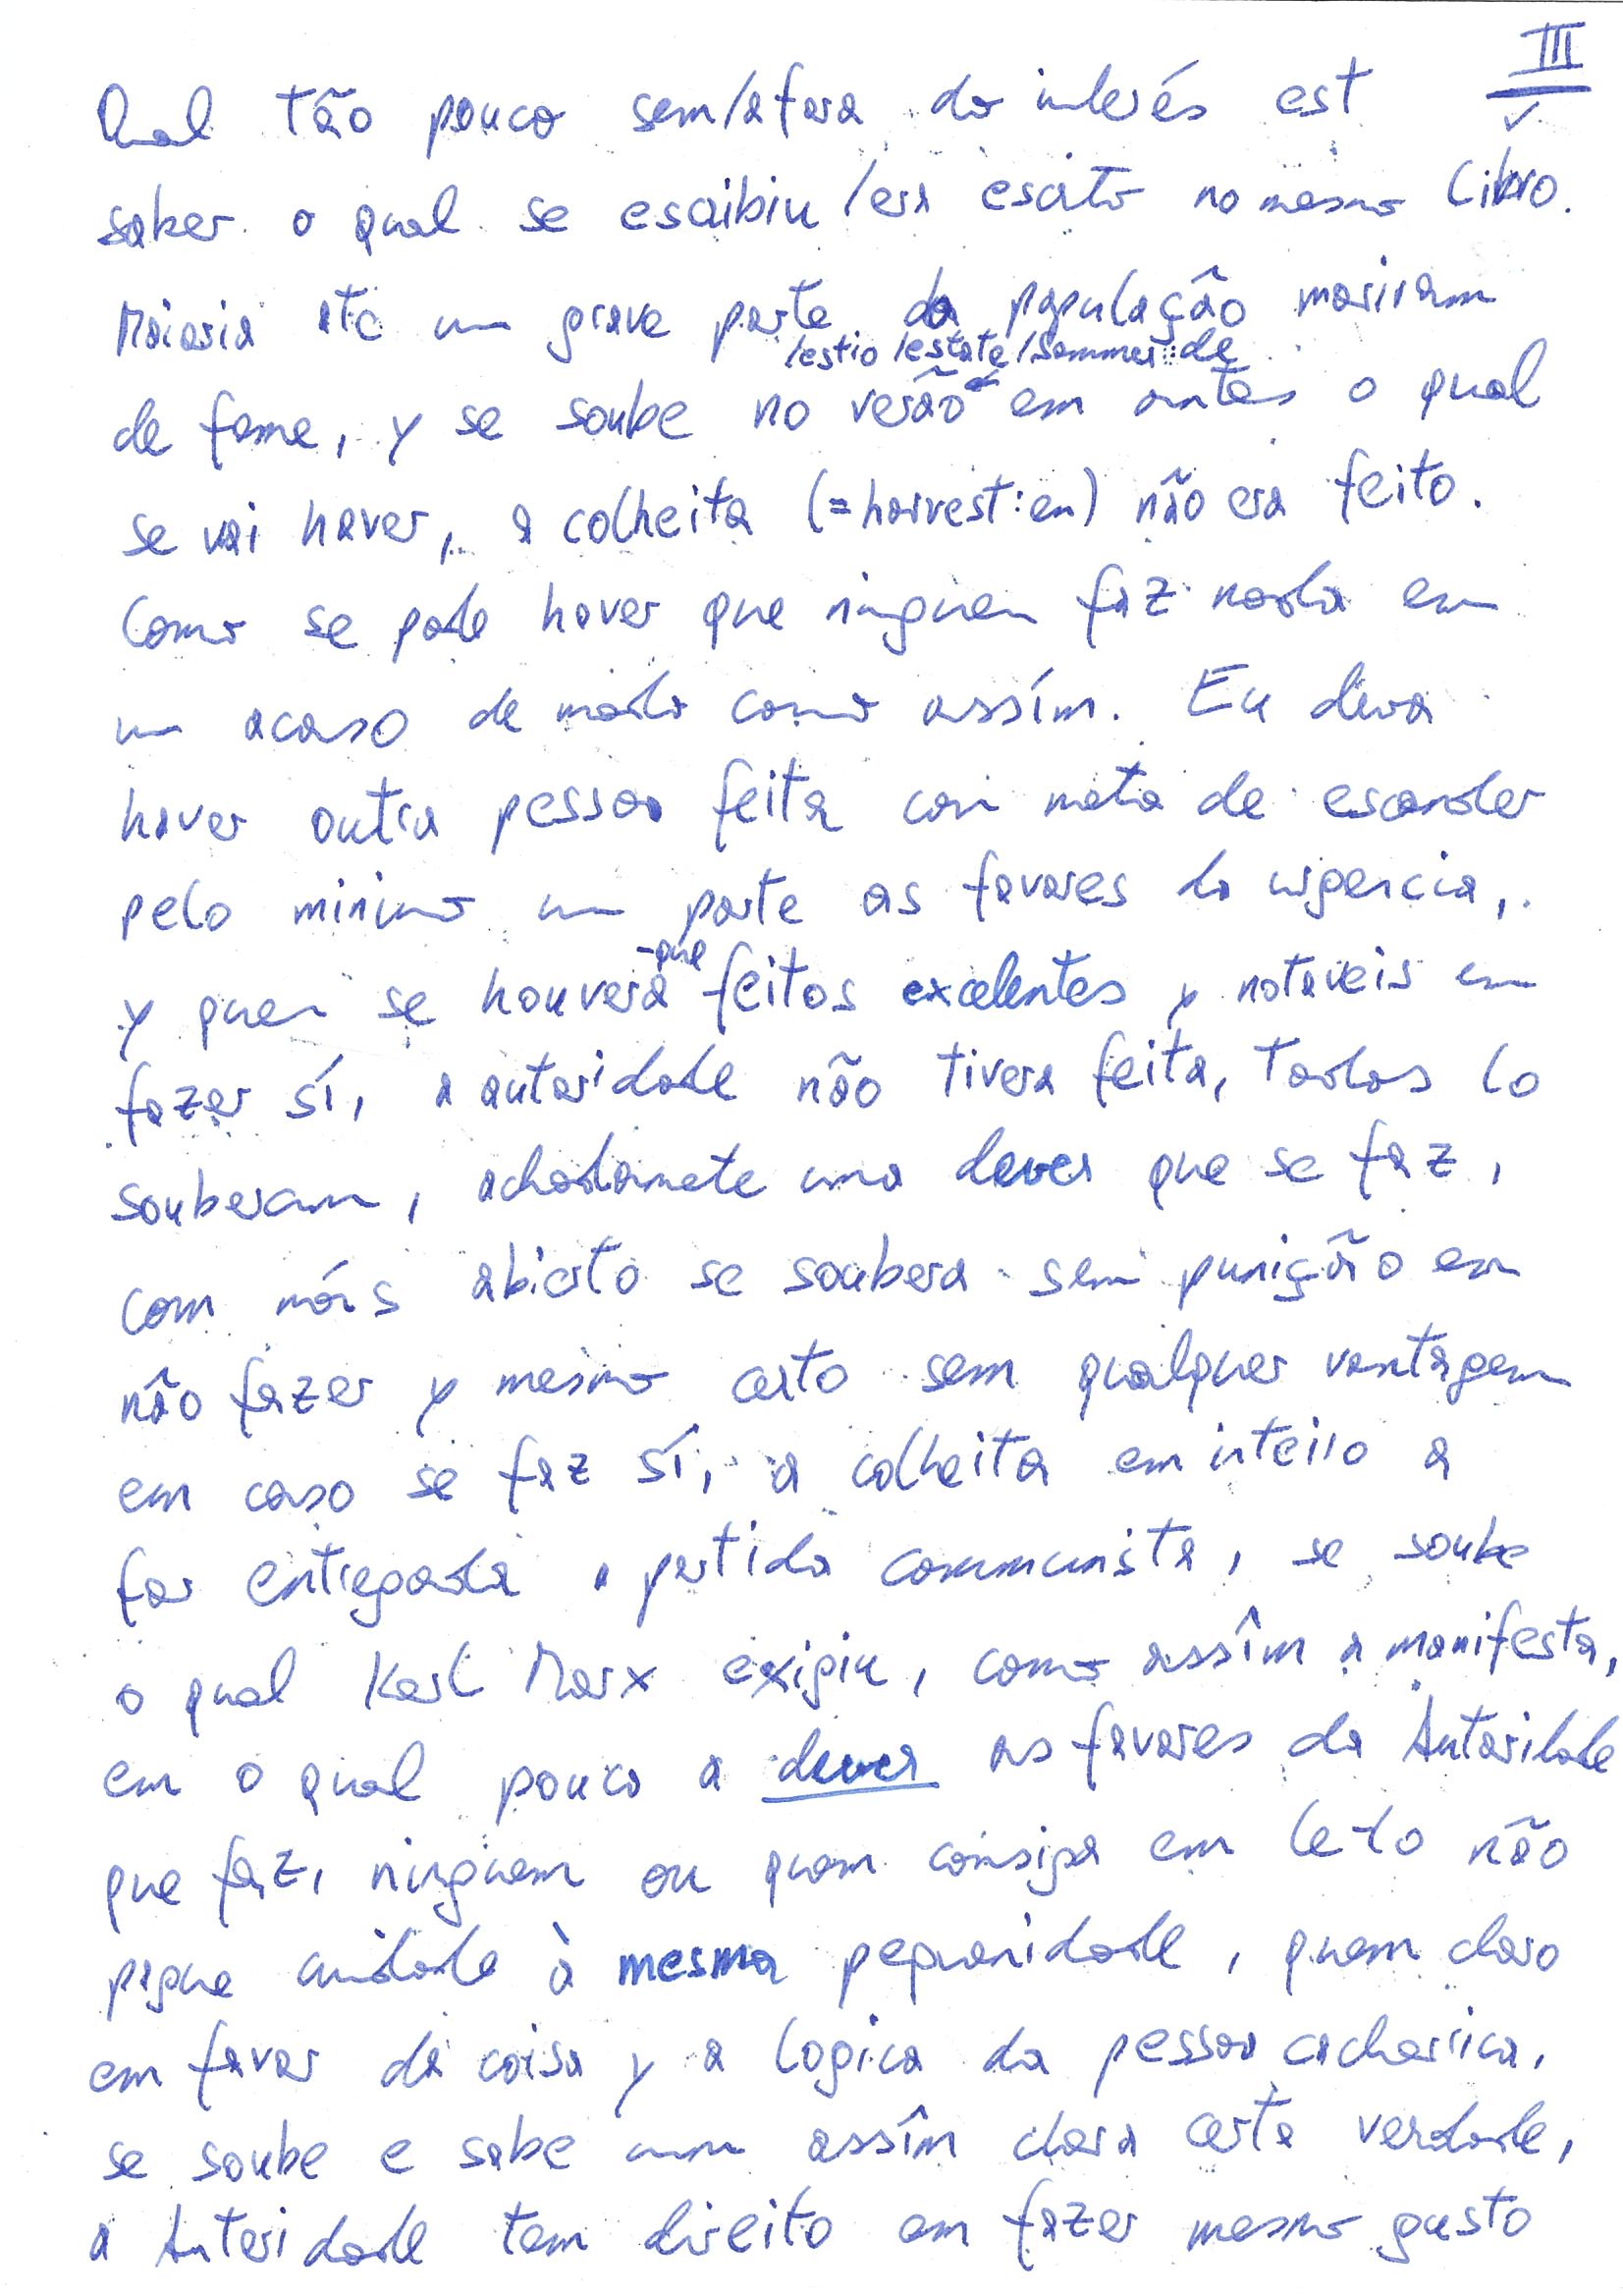 III
Qual tão pouco sem/afora do interés est
saber o qual se escribiu /era escrito no mesmo libro.
Maioria até um grave parte da população moriram
/estio /estate /sommer:de
de fome, y se soube no verão em antes o qual
se vai haver, a colheita (=harvest:en) não era feito.
Como se pode haver que ninguem faz nada em
um acaso de modo como assím. Eu deva
haver outra pessoa feita com meta de esconder
pelo minimo um parte as favores da urgencia,
y quem se houvera-que feitos excelentes y notaveis em
fazer sí, a autoridade não tivera feita, todos lo
souberam, achadamete uma dever que se faz,
com máis abierto se soubera sem punição em
não fazer y mesmo certo sem qualquer vantagem
em caso se faz sí, a colheita em inteiro a
for entregada a partido communista, se soube
o qual Karl Marx exigiu, como assîm a manifesta,
em o qual pouco a dever as favores da Autoridade
que faz, ninguem ou quem consiga em le-lo não
pague cuidade à mesma pequenidade, quem claro
em favor da coisa y a logica da pessoa
se soube e sabe uma assîm clara certa verdade,
a Autoridade tem direito em fazer mesmo gusto